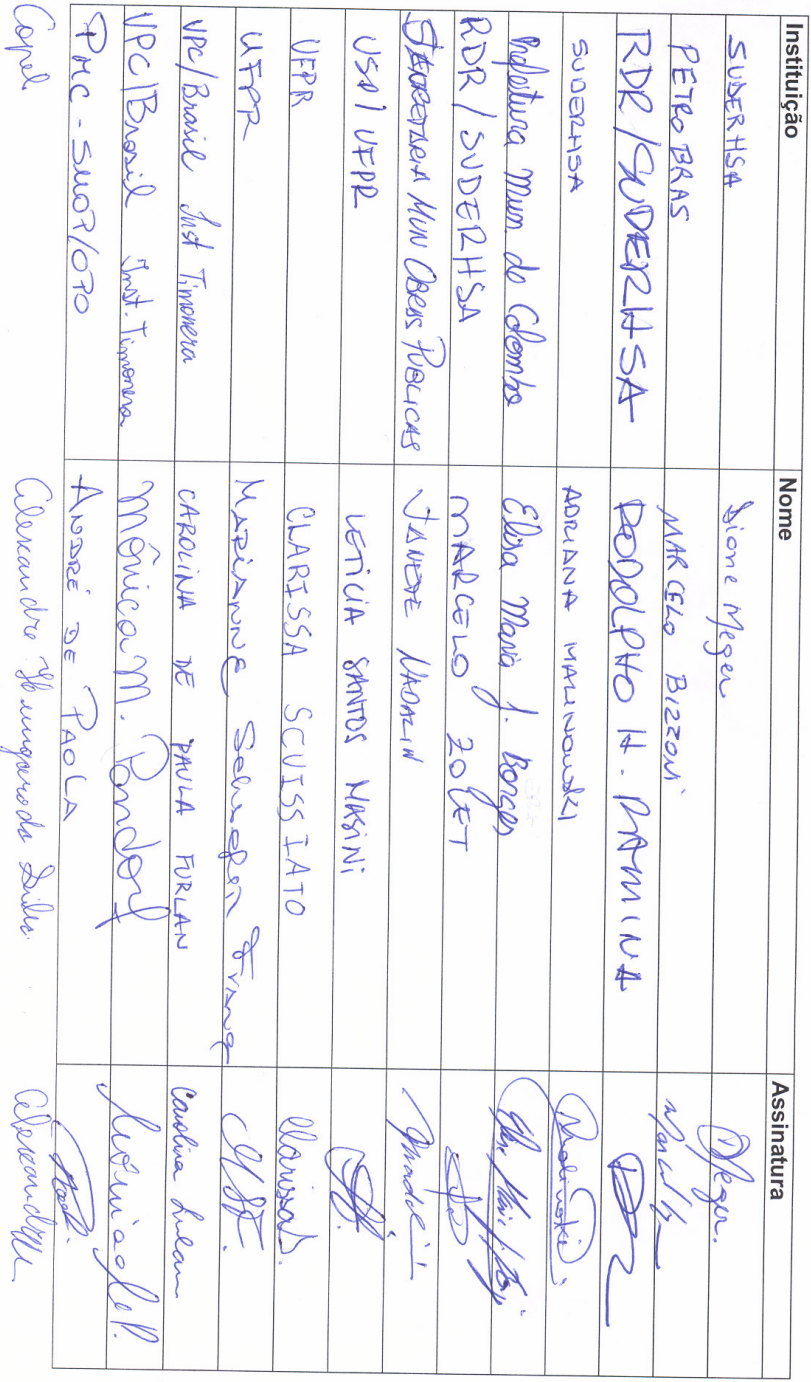 Instituição Nome Assinatura
SUDERHSA Sione Meger Meger.
PETROBRAS MARCELO BIZZONI
RDR/SUDERHSA RODOLPHO H. RAMINA
SUDERHSA ADRIANA MALINOWSKI Malinowski
Prefeitura Mun de Colombo Elisa Maria J. Borges
RDR/SUDERHSA MARCELO ZOLET
SECRETARIA MUN OBRAS PUBLICAS JANETE NADALIN
USP/UFPR LETÍCIA SANTOS MASINI
UFPR CLARISSA SCUISSIATO ClarissaS.
UFPR MARIANNE Schaefer França MSF.
VPC/Brasil Inst Timonera CAROLINA DE PAULA FURLAN Carolina Furlan
VPC/Brasil Inst. Timonera Mônica M. Pondorf
PMC - SMOP/OPO ANDRÉ DE PAOLA
Copel Alexandre